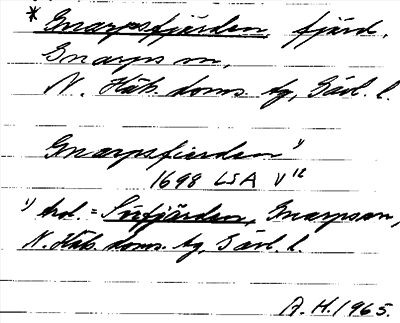 * Gnarpsfjärden, fjärd,
Gnarps sn,
N. Häls. doms. tg, Gävl. l.
Gnarpsfiärden ¹⁾
1698 LSA V¹²
¹⁾ trol. = Sörfjärden, Gnarps sn,
N. Häls. doms. tg, Gävl. l.
A.H. 1965.